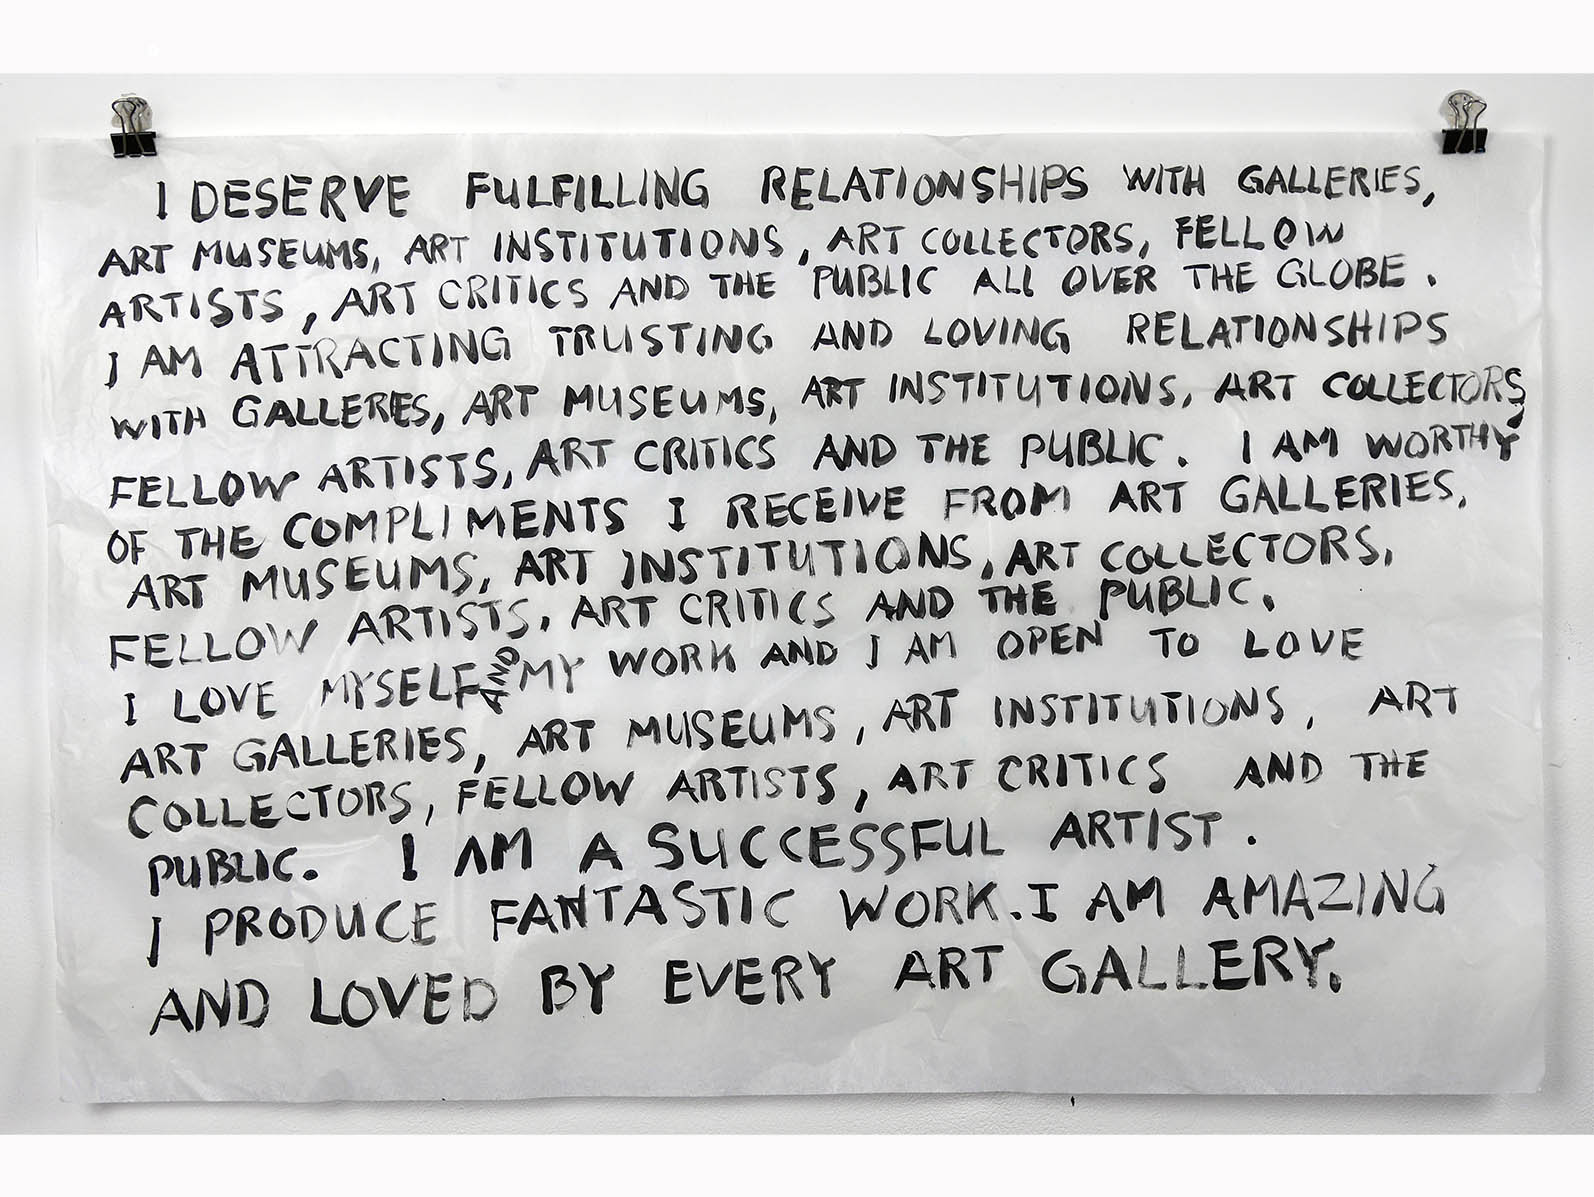 I DESERVE FULFILLING RELATIONSHIPS WITH GALLERIES,
ART MUSEUMS, ART INSTITUTIONS, ART COLLECTORS, FELLOW
ARTISTS, ART CRITICS AND THE PUBLIC ALL OVER THE GLOBE.
I AM ATTRACTING TRUSTING AND LOVING RELATIONSHIPS
WITH GALLERIES, ART MUSEUMS, ART INSTITUTIONS, ART COLLECTORS,
FELLOW ARTISTS, ART CRITICS AND THE PUBLIC. I AM WORTHY
OF THE COMPLIMENTS I RECEIVE FROM ART GALLERIES,
ART MUSEUMS, ART INSTITUTIONS, ART COLLECTORS,
FELLOW ARTISTS, ART CRITICS AND THE PUBLIC.
I LOVE MYSELF AND MY WORK AND I AM OPEN TO LOVE
ART GALLERIES, ART MUSEUMS, ART INSTITUTIONS, ART
COLLECTORS, FELLOW ARTISTS, ART CRITICS AND THE
PUBLIC. I AM A SUCCESSFUL ARTIST.
I PRODUCE FANTASTIC WORK. I AM AMAZING
AND LOVED BY EVERY ART GALLERY.